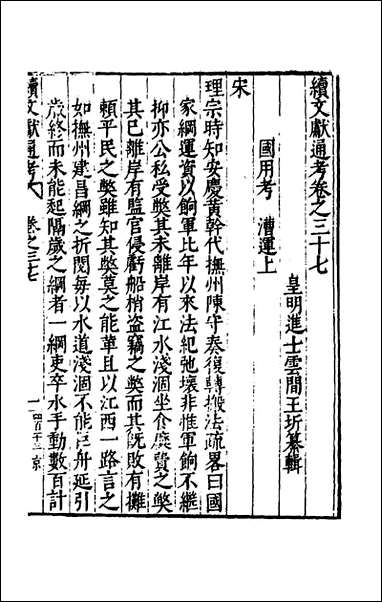 續文獻通考卷之三十七
皇明進士雲間王圻纂輯
國用考 漕運上
宋
理宗時知安慶黃幹代撫州陳守奏復轉搬法疏畧曰國
家綱運資以餉軍比年以來法𥿄弛壞非惟軍餉不繼
抑亦公私受獘其未離岸有江水淺涸坐食糜費之獘
其已離岸有監官侵虧船梢盗竊之獘而其既敗有攤
賴平民之獘雖知其獘莫之能革且以江西一路言之
如撫州建昌綱之折閱每以水道淺涸不能巨舟延引
歲終而未能起隔歲之綱者一綱吏卒水手動數百計
續文獻通考 卷之三七 一